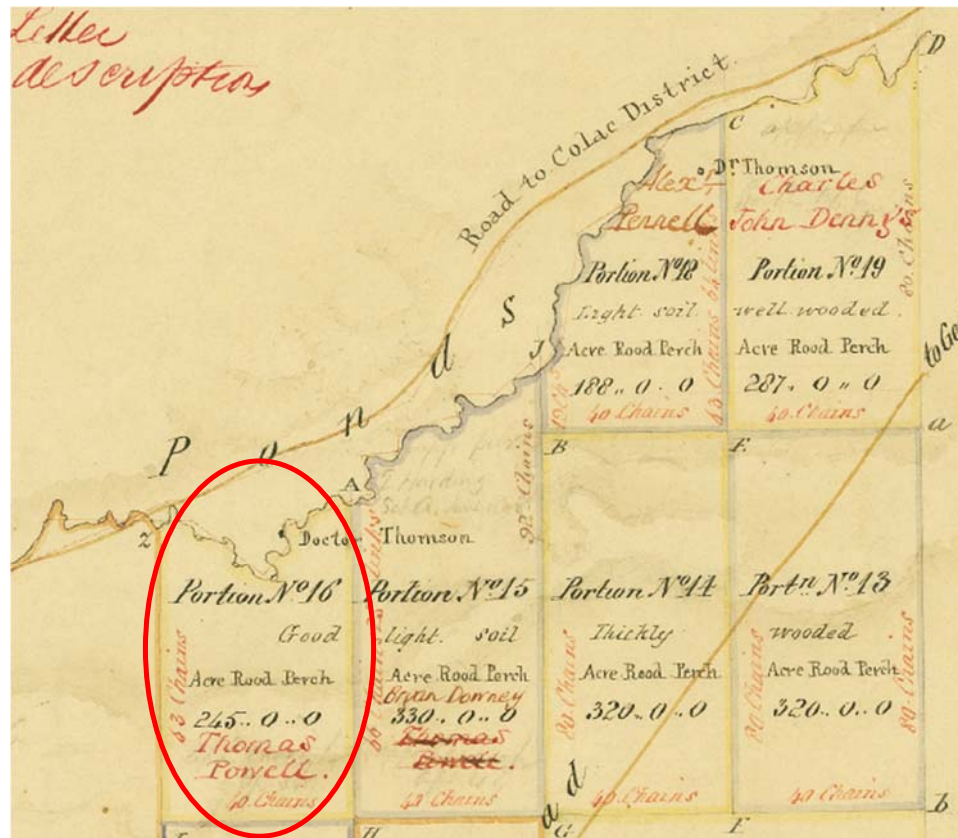 Letter
description
D
C
Road to Colac District.
Dr Thomson
Alexr
Pennell
Charles
John Denny's
Portion No 18
Light soil
Acre Rood Perch
188,, 0 . 0
40 Chains
80 Chains
Portion No 19
well wooded.
Acre Rood Perch
287. 0 ,, 0
40 Chains
Ponds
J
A
Z
B
E
a
92 Chains
Docto Thomson
Portion No 16
Good
Acre Rood Perch
245.. 0 .. 0
Thomas
Powell.
40 Chains
63 Chains
Portion No 15
light. soil
Acre Rood Perch
Bryan Downey
330.. 0 .. 0
Thomas
Powell.
40 Chains
Portion No 14
Thickly
Acre Rood Perch
320.. 0 .. 0
40 Chains
80 Chains
Portn No 13
wooded
Acre Rood Perch
320.. 0 .. 0
40 Chains
80 Chains
80 Chains
ad
H
G
F
b